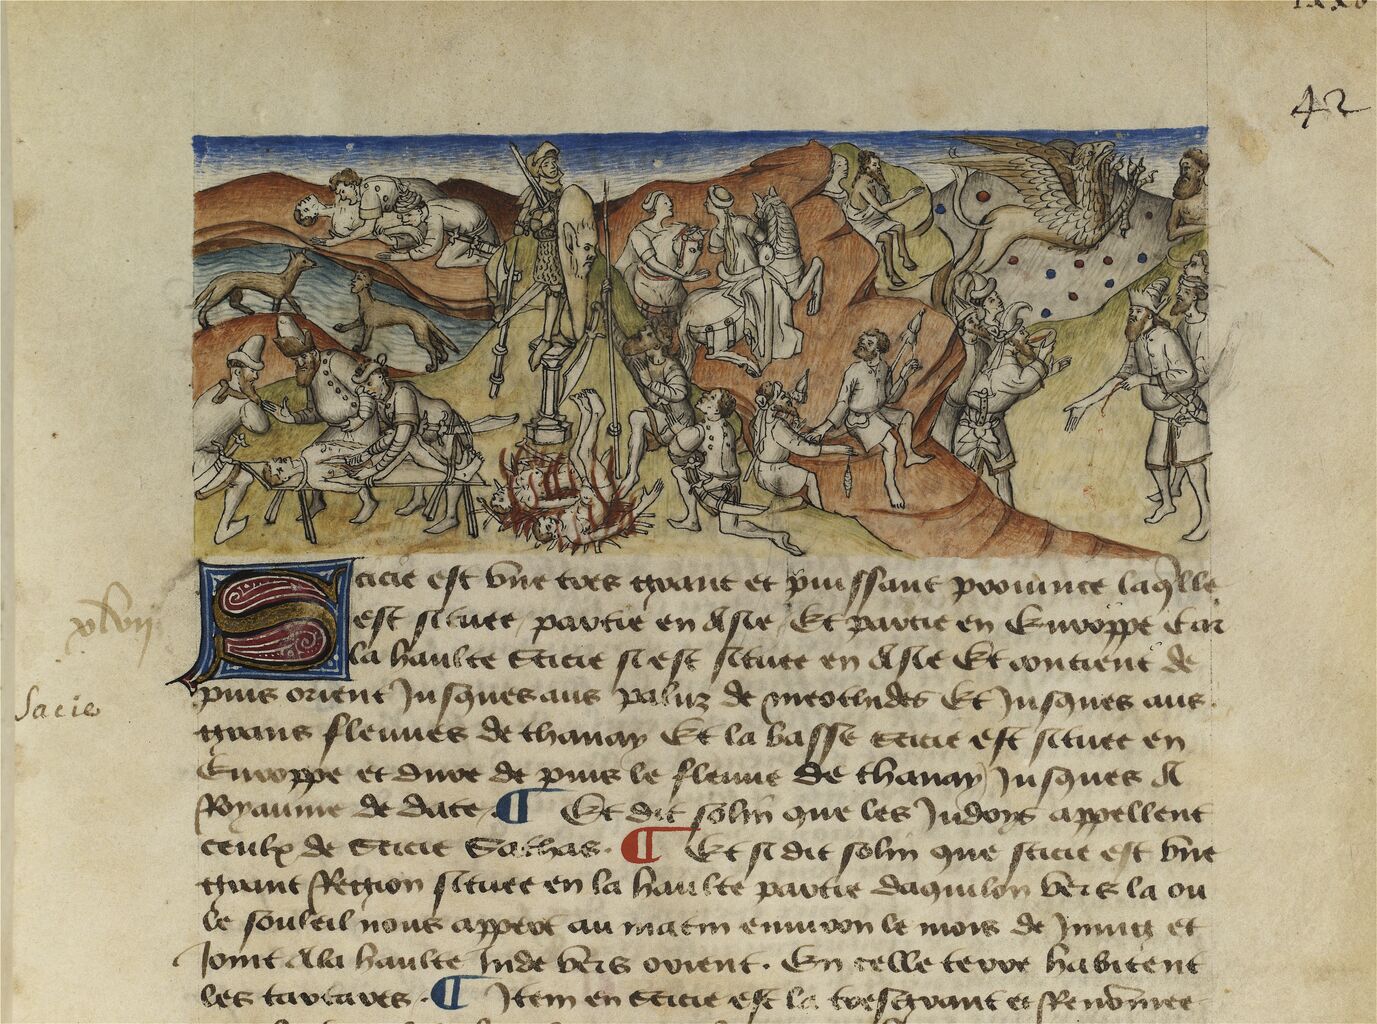 42
Scicie est vne tres grant et puissant prouince laqlle
xlvij
est situee partie en Asie Et partie en Europpe Car
la haulte Sticie si est situee en Asie Et contient de
Sacie
puis orient Jusques aus paluz de meothides Et Jusques aus
grans fleuues de thanay Et la basse Sticie est situee en
Europpe et dure de puis le fleuue de thanay Jusques A
Royaume de dace ¶ Et dit solin que les Judoys appellent
ceulx de Sticie Sathas ¶ Et si dit solin que sticie est vne
grant Region situee en la haulte partie daquilon vers la ou
le souleil nous appert au matin enuiron le mois de Juing et
Joint Ala haulte Inde vers orient. En celle terre habitent
les tartares ¶ Item en Sticie est la tresgrant et Renommee